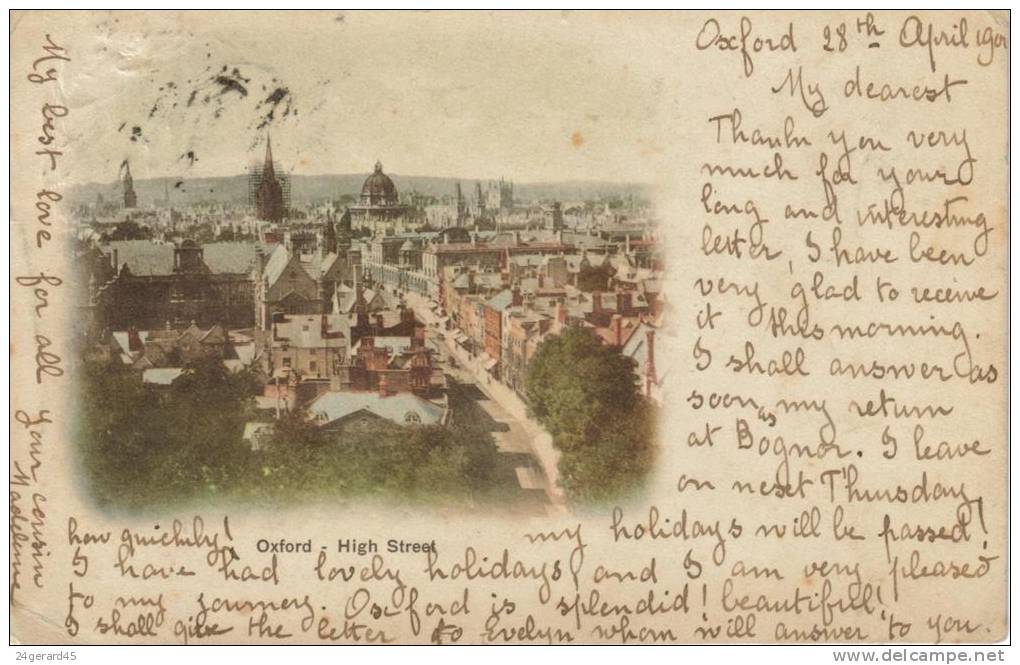 Oxford 28th April 190
My dearest
Thank you very
much for your
long and interesting
letter, I have been
very glad to receive
it this morning.
I shall answer as
soon as my return
at Bognor. I leave
on next Thursday,
my holidays will be passed!
how quickly!
Oxford - High Street
I have had lovely holidays, and I am very pleased
to my journey. Oxford is splendid! beautiful!
I shall give the letter to Evelyn whom will answer to you.
My best love for all your cousin
Madeleine
24gerard45
www.delcampe.net